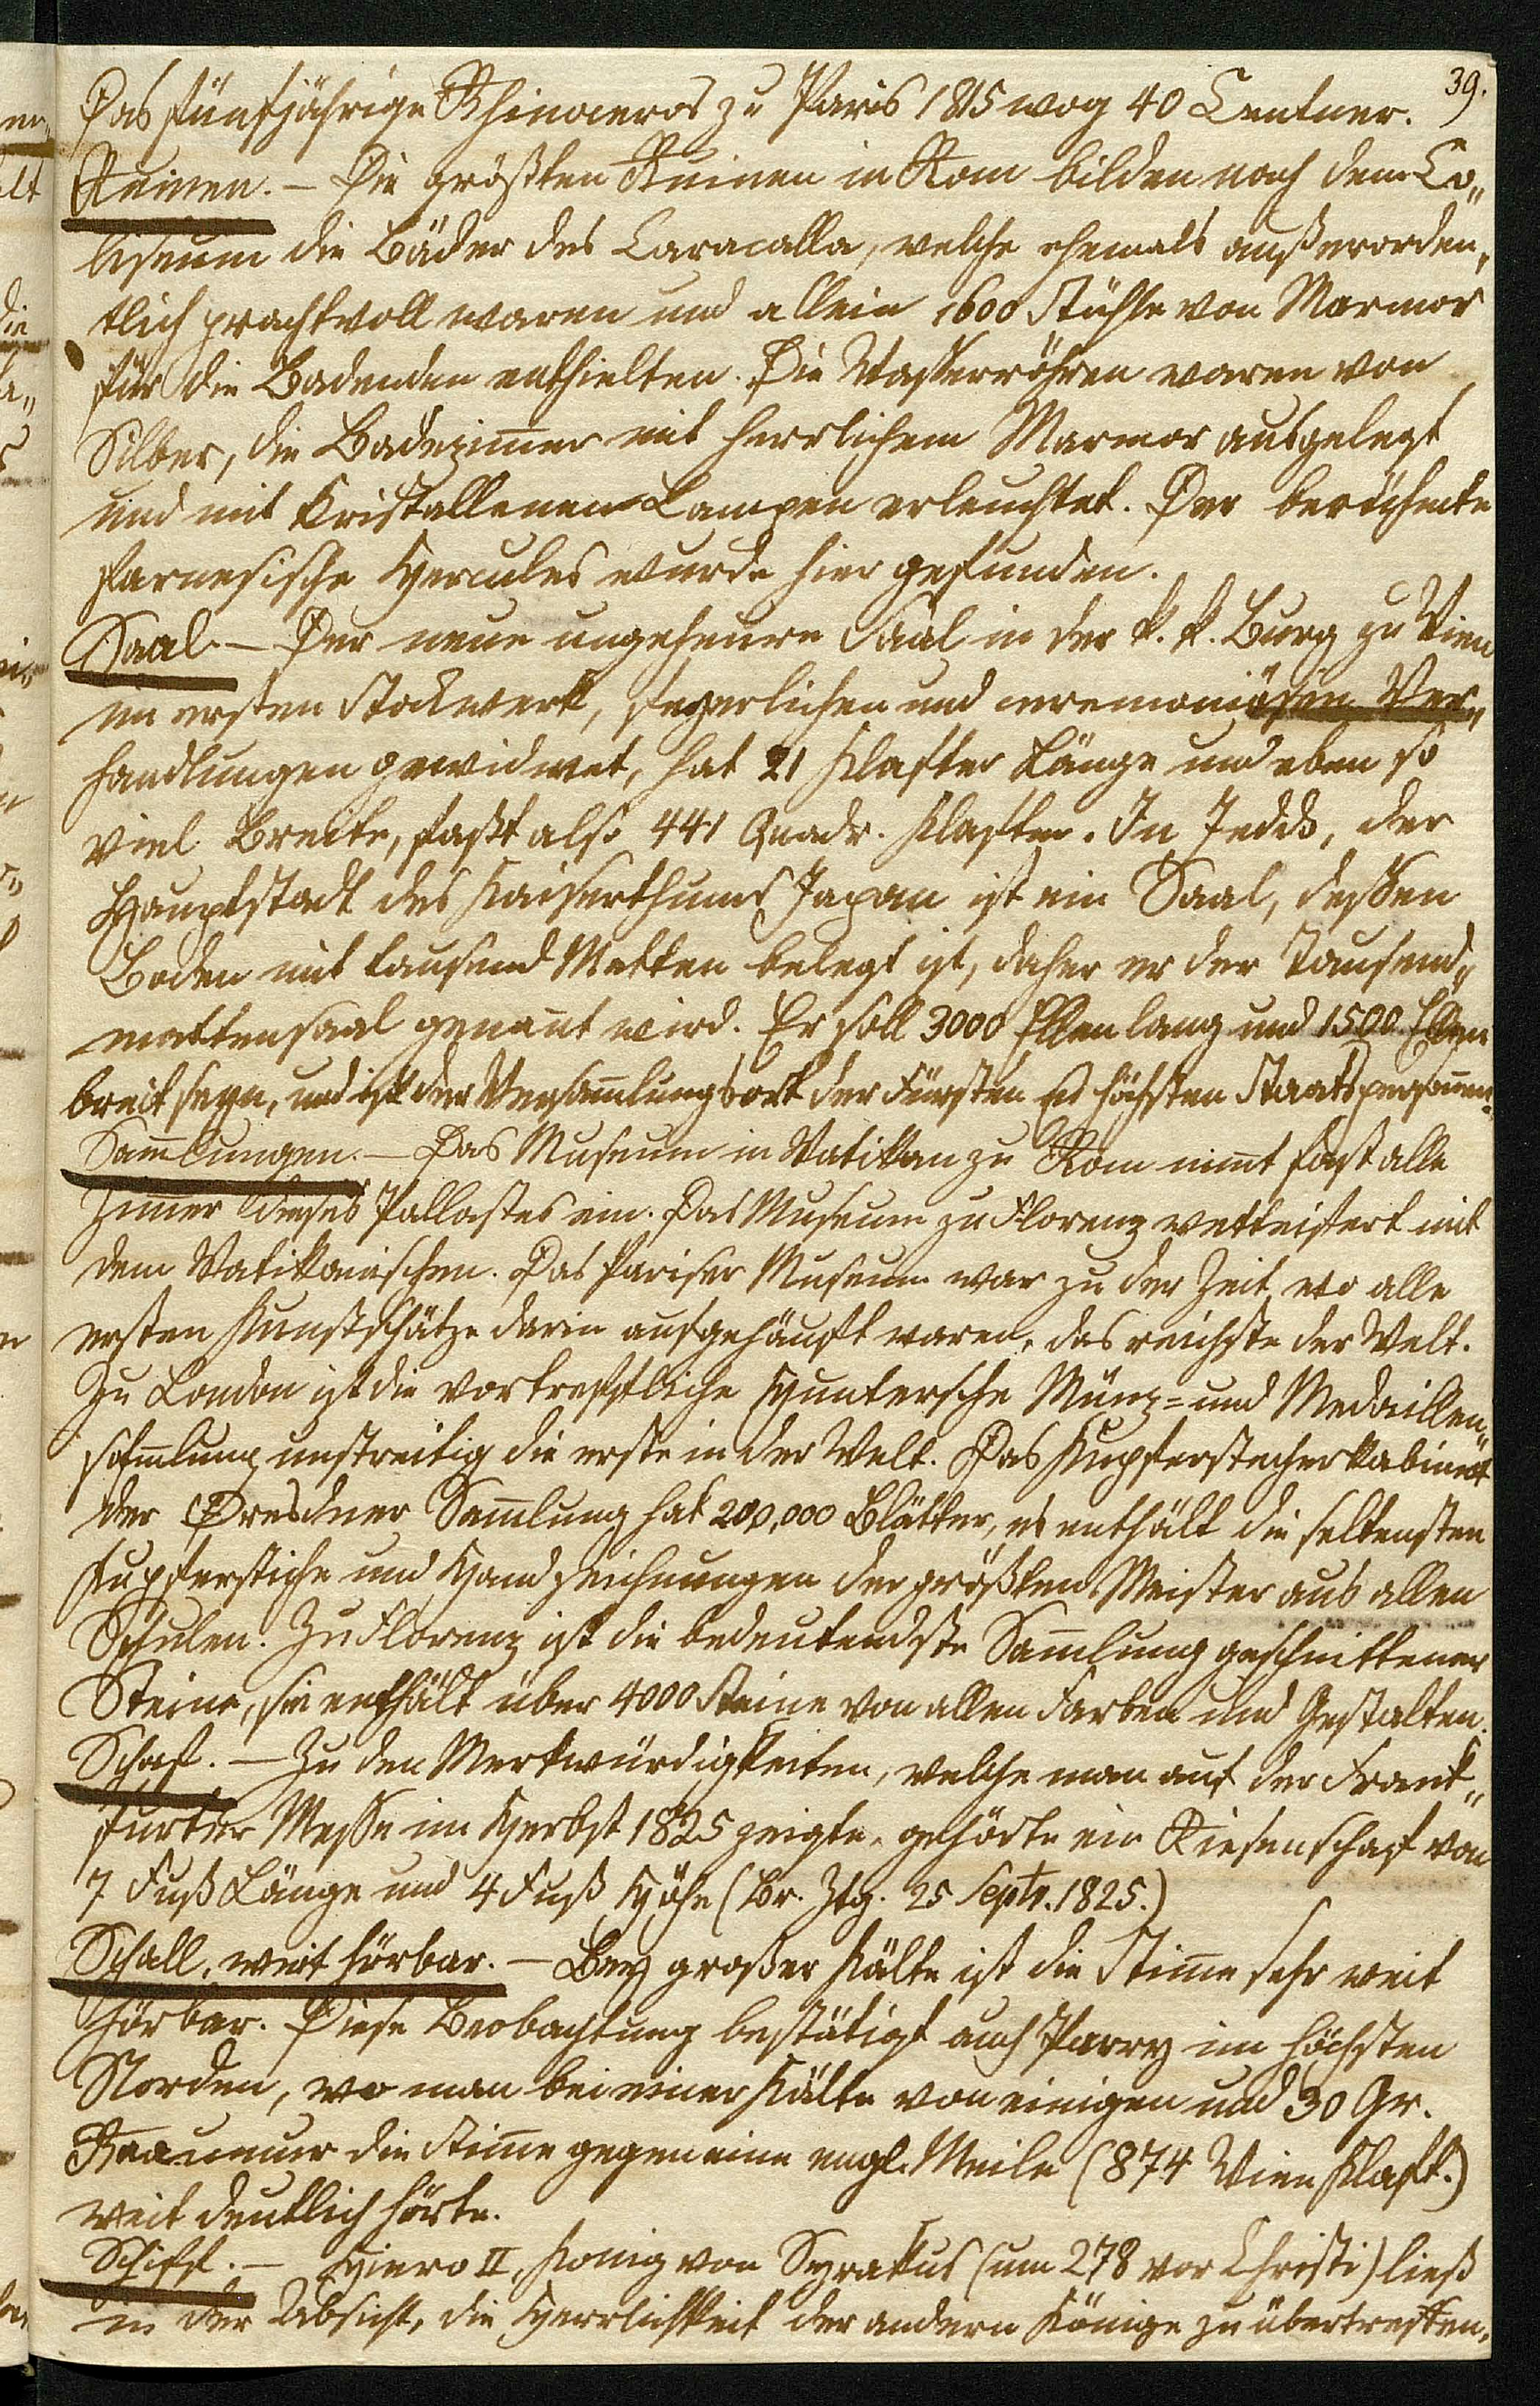 39.
Das fünfjährige Rhinoceros zu Paris 1815 wog 40 Centner.
Ruinen. – Die größten Ruinen in Rom bilden nach dem Co„
liseum die Bäder des Caracalla, welche ehemals außerorden„
tlich prachtvoll waren und allein 1600 Stühle von Marmor
für die Badenden enthielten. Die Wasserröhren waren von
Silber, die Badezim̅er mit herrlichem Marmor ausgelegt
und mit kristallenen Lampen erleuchtet. Der berühmte
farnesische Hercules wurde hier gefunden.
Saal. – Der neue ungeheure Saal in der k. k. Burg zu Wien
im ersten Stockwerk, feyerlichen und ceremoniösen Ver„
handlungen gewidmet, hat 21 Klafter Länge und eben so
viel Breite, faßt also 441 Quadr. Klafter. In Jeddo, der
Hauptstadt des Kaiserthums Japan ist ein Saal, dessen
Boden mit tausend Matten belegt ist, daher er der Tausend„
mattensaal genan̅t wird. Er soll 3000 Ellen lang und 1500 Ellen
breit seyn, und ist der Versam̅lungsort der Fürsten u höchsten Staatspersonen.
Sam̅lungen. – Das Museum im Vatikan zu Rom nim̅t fast alle
Zim̅er dieses Pallastes ein. Das Museum zu Florenz wetteifert mit
dem Vatikanischen. Das Pariser Museum war zu der Zeit, wo alle
ersten Kunstschätze darin aufgehäuft waren, das reichste der Welt.
Zu London ist die vortreffliche Huntersche Münz- und Medaillen„
sam̅lung unstreitig die erste in der Welt. Das Kupferstecherkabinet
der Dresdner Sam̅lung hat 200,000 Blätter, es enthält die seltensten
Kupferstiche und Handzeichnungen der größten Meister aus allen
Schulen. Zu Florenz ist die bedeutendste Sam̅lung geschnittener
Steine, sie enthält über 4000 Steine von allen Farben und Gestalten.
Schaf. – Zu den Merkwürdigkeiten, welche man auf der Frank„
furter Messe im Herbst 1825 zeigte, gehörte ein Riesenschaf von
7 Fuß Länge und 4 Fuß Höhe (Br. Ztg. 25 Septr. 1825.)
Schall, weit hörbar. – Bey großer Kälte ist die Stim̅e sehr weit
hörbar. Diese Beobachtung bestätigt auch Parry im höchsten
Norden, wo man bei einer Kälte von einigen und 30 Gr.
Reaumur die Stim̅e gegen eine engl. Meile (874 Wien Klaft.)
weit deutlich hörte.
Schiff. – Hiero II, König von Syrakus (um 278 vor Christi) ließ
in der Absicht, die Herrlichkeit der andern Könige zu übertreffen,